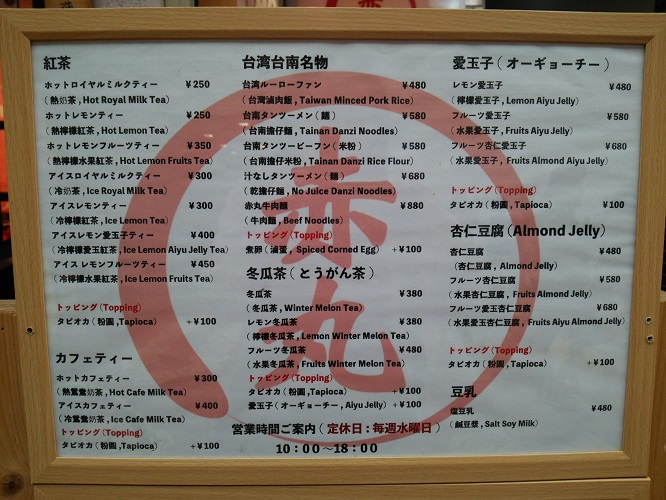 紅茶
ホットロイヤルミルクティー ¥250
(熱奶茶, Hot Royal Milk Tea)
ホットレモンティー ¥250
(熱檸檬紅茶, Hot Lemon Tea)
ホットレモンフルーツティー ¥350
(熱檸檬水果紅茶, Hot Lemon Fruits Tea)
アイスロイヤルミルクティー ¥300
(冷奶茶, Ice Royal Milk Tea)
アイスレモンティー ¥300
(冷檸檬紅茶, Ice Lemon Tea)
アイスレモン愛玉子ティー ¥400
(冷檸檬愛玉紅茶, Ice Lemon Aiyu Jelly Tea)
アイスレモンフルーツティー ¥450
(冷檸檬水果紅茶, Ice Lemon Fruits Tea)
トッピング(Topping)
タピオカ(粉圓,Tapioca) +¥100
カフェティー
ホットカフェティー ¥300
(熱鴛鴦奶茶, Hot Cafe Milk Tea)
アイスカフェティー ¥400
(冷鴛鴦奶茶, Ice Cafe Milk Tea)
トッピング(Topping)
タピオカ(粉圓,Tapioca) +¥100
台湾台南名物
台湾ルーローファン ¥480
(台灣滷肉飯, Taiwan Minced Pork Rice)
台南タンツーメン(麺) ¥580
(台南擔仔麵, Tainan Danzi Noodles)
台南タンツービーフン(米粉) ¥580
(台南擔仔米粉, Tainan Danzi Rice Flour)
汁なしタンツーメン(麺) ¥680
(乾擔仔麵, No Juice Danzi Noodles)
赤丸牛肉麺 ¥880
(牛肉麵, Beef Noodles)
トッピング(Topping)
煮卵(滷蛋, Spiced Corned Egg) +¥100
冬瓜茶(とうがん茶)
冬瓜茶 ¥380
(冬瓜茶, Winter Melon Tea)
レモン冬瓜茶 ¥380
(檸檬冬瓜茶, Lemon Winter Melon Tea)
フルーツ冬瓜茶 ¥480
(水果冬瓜茶, Fruits Winter Melon Tea)
トッピング(Topping)
タピオカ(粉圓,Tapioca) +¥100
愛玉子(オーギョーチー, Aiyu Jelly) +¥100
愛玉子(オーギョーチー)
レモン愛玉子 ¥480
(檸檬愛玉子, Lemon Aiyu Jelly)
フルーツ愛玉子 ¥580
(水果愛玉子, Fruits Aiyu Jelly)
フルーツ杏仁愛玉子 ¥680
(水果愛玉子, Fruits Almond Aiyu Jelly)
トッピング(Topping)
タピオカ(粉圓, Tapioca) ¥100
杏仁豆腐(Almond Jelly)
杏仁豆腐 ¥480
(杏仁豆腐, Almond Jelly)
フルーツ杏仁豆腐 ¥580
(水果杏仁豆腐, Fruits Almond Jelly)
フルーツ愛玉杏仁豆腐 ¥680
(水果愛玉杏仁豆腐, Fruits Aiyu Almond Jelly)
トッピング(Topping)
タピオカ(粉圓,Tapioca) +¥100
豆乳
塩豆乳 ¥480
(鹹豆漿, Salt Soy Milk)
赤丸
営業時間ご案内(定休日:毎週水曜日)
10:00〜18:00